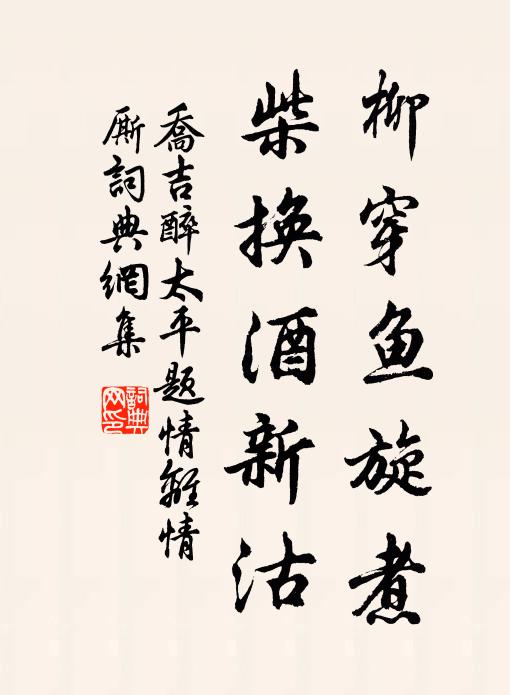 柳穿鱼旋煮
柴換酒新沽
喬吉醉太平題情離情
厮詞典網集
詞典网印